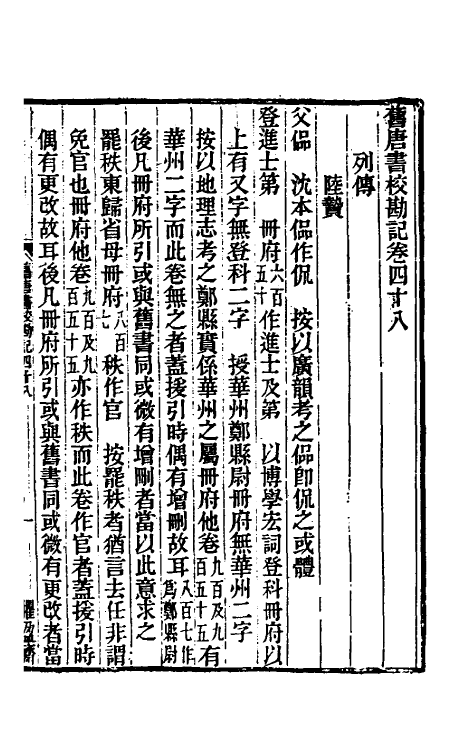 舊唐書校勘記卷四十八
列傳
陸贄
父侶　沈本侶作侃　按以廣韻考之侶卽侃之或體
登進士第　冊府六百五十作進士及第　以博學宏詞登科冊府以
上有又字無登科二字　授華州鄭縣尉冊府無華州二字
按以地理志考之鄭縣實係華州之屬冊府他卷九百及九百五十五有
華州二字而此卷無之者蓋援引時偶有增刪故耳八百七作爲鄭縣尉
後凡冊府所引或與舊書同或微有增刪者當以此意求之
罷秩東歸省母冊府八百七　秩作官　按罷秩者猶言去任非謂
免官也冊府他卷九百及九百五十五亦作秩而此卷作官者蓋援引時
偶有更改故耳後凡冊府所引或與舊書同或微有更改者當
舊唐書校勘記四十八　一